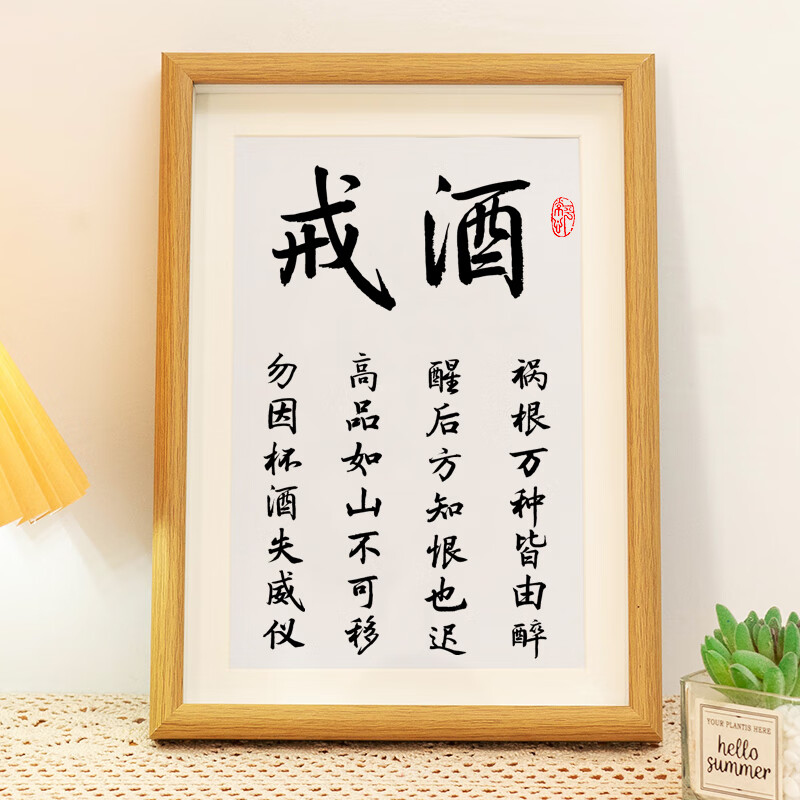 戒酒
祸根万种皆由醉
醒后方知恨也迟
高品如山不可移
勿因杯酒失威仪
YOUR PLANT IS HERE
hello
summer